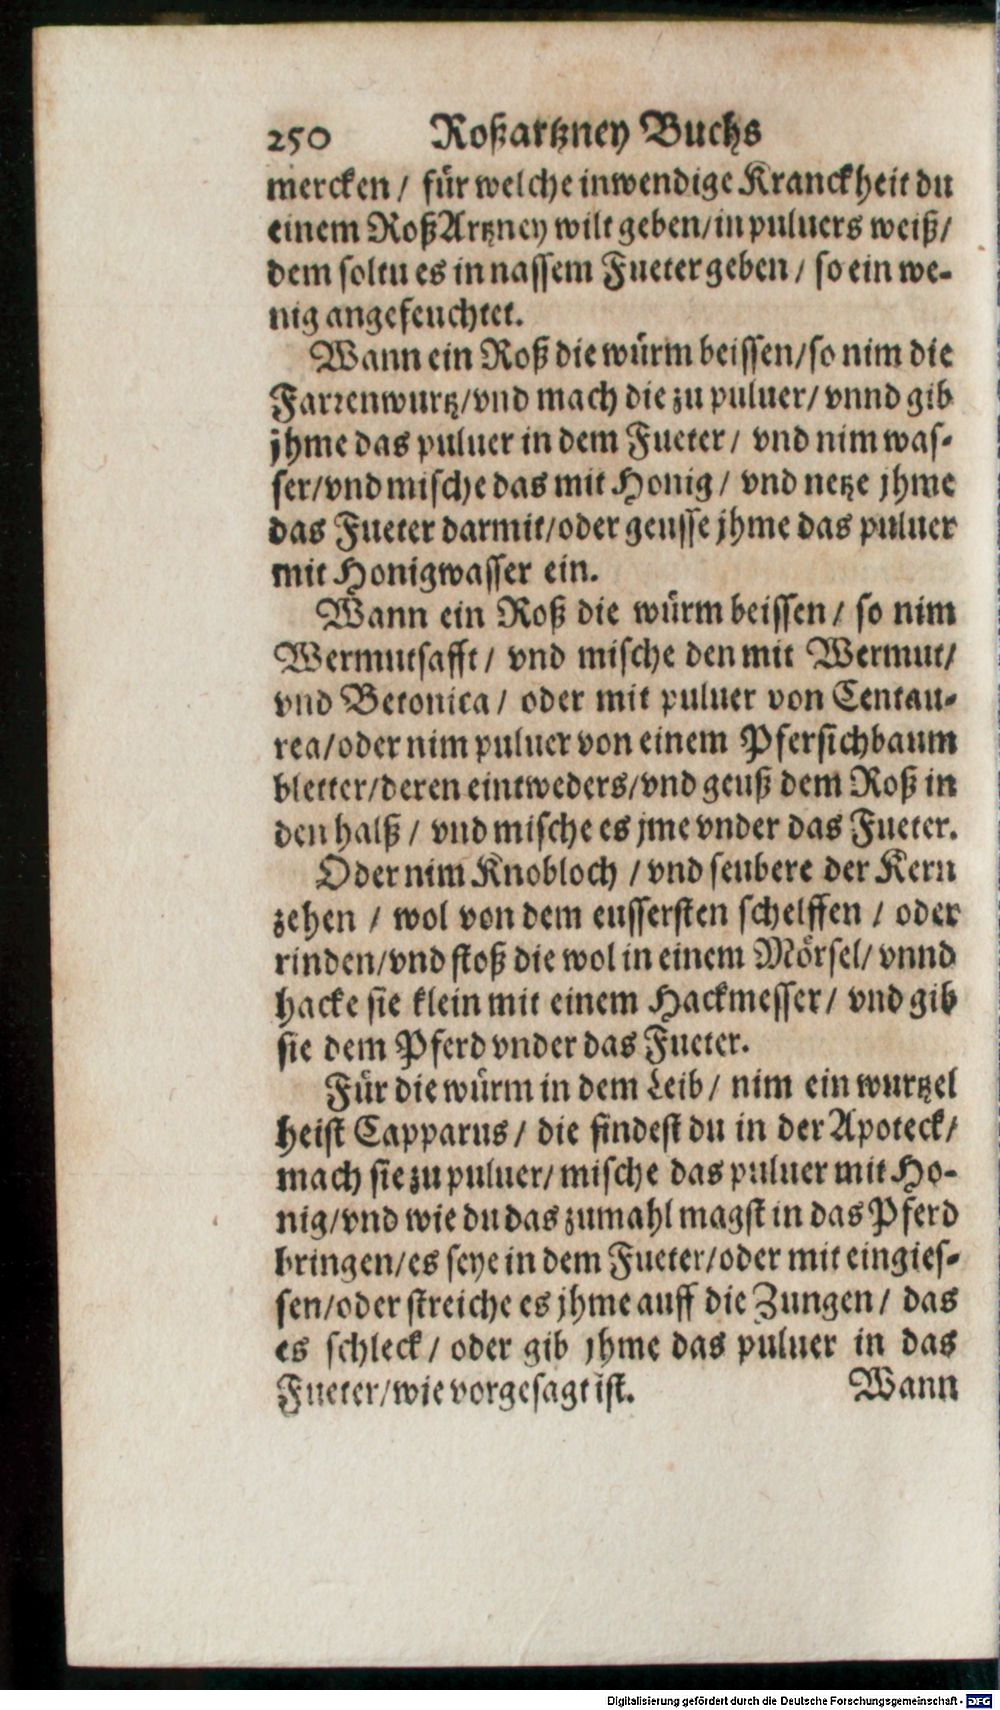 250 Roßartzney Buchs
mercken / für welche inwendige Kranckheit du
einem Roß Artzney wilt geben/in puluers weiß/
dem soltu es in nassem Fueter geben / so ein we-
nig angefeuchtet.
Wann ein Roß die würm beissen/so nim die
Farrenwurtz/vnd mach die zu puluer/ vnnd gib
jhme das puluer in dem Fueter / vnd nim was-
ser/vnd mische das mit Honig / vnd netze jhme
das Fueter darmit/oder geusse jhme das puluer
mit Honigwasser ein.
Wann ein Roß die würm beissen / so nim
Wermutsafft / vnd mische den mit Wermut/
vnd Betonica / oder mit puluer von Centau-
rea/oder nim puluer von einem Pfersichbaum
bletter/deren eintweders/vnd geuß dem Roß in
den halß / vnd mische es jme vnder das Fueter.
Oder nim Knobloch / vnd seubere der Kern
zehen / wol von dem eussersten schelffen / oder
rinden/vnd stoß die wol in einem Mörsel/ vnnd
hacke sie klein mit einem Hackmesser/ vnd gib
sie dem Pferd vnder das Fueter.
Für die würm in dem Leib/ nim ein wurtzel
heist Capparus/ die findest du in der Apoteck/
mach sie zu puluer/ mische das puluer mit Ho-
nig/vnd wie du das zumahl magst in das Pferd
bringen/es seye in dem Fueter/oder mit eingies-
sen/oder streiche es jhme auff die Zungen / das
es schleck / oder gib jhme das puluer in das
Fueter/wie vorgesagt ist. Wann
Digitalisierung gefördert durch die Deutsche Forschungsgemeinschaft - DFG